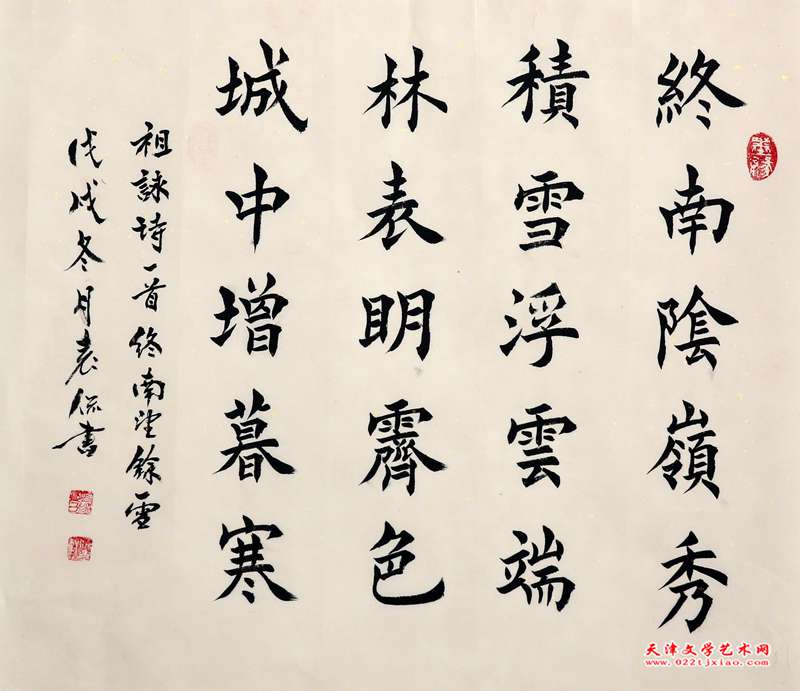 終南陰嶺秀
積雪浮雲端
林表明霽色
城中增暮寒
祖詠詩一首終南望餘雪
戊戌冬月袁侃書
天津文学艺术网
www.022tjxiao.com